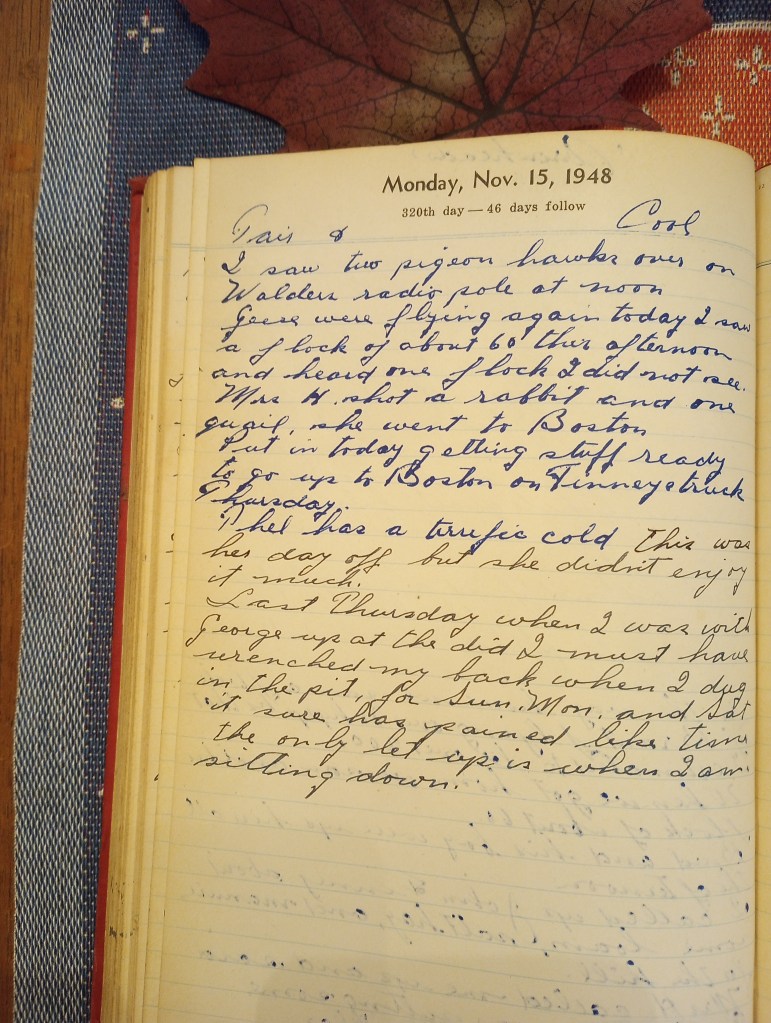 Monday, Nov. 15, 1948
320th day — 46 days follow
Fair & Cool
I saw two pigeon hawks over on
Walders radio pole at noon
Geese were flying again today I saw
a flock of about 60 this afternoon
and heard one flock I did not see.
Mrs H. shot a rabbit and one
quail, she went to Boston
Put in today getting stuff ready
to go up to Boston on Tinneys truck
Thursday.
Thel has a terrific cold This was
her day off but she didn't enjoy
it much.
Last Thursday when I was with
George up at the did I must have
wrenched my back when I dug
in the pit, for Sun. Mon. and Sat
it sure has pained like time
the only let up is when I am
sitting down.